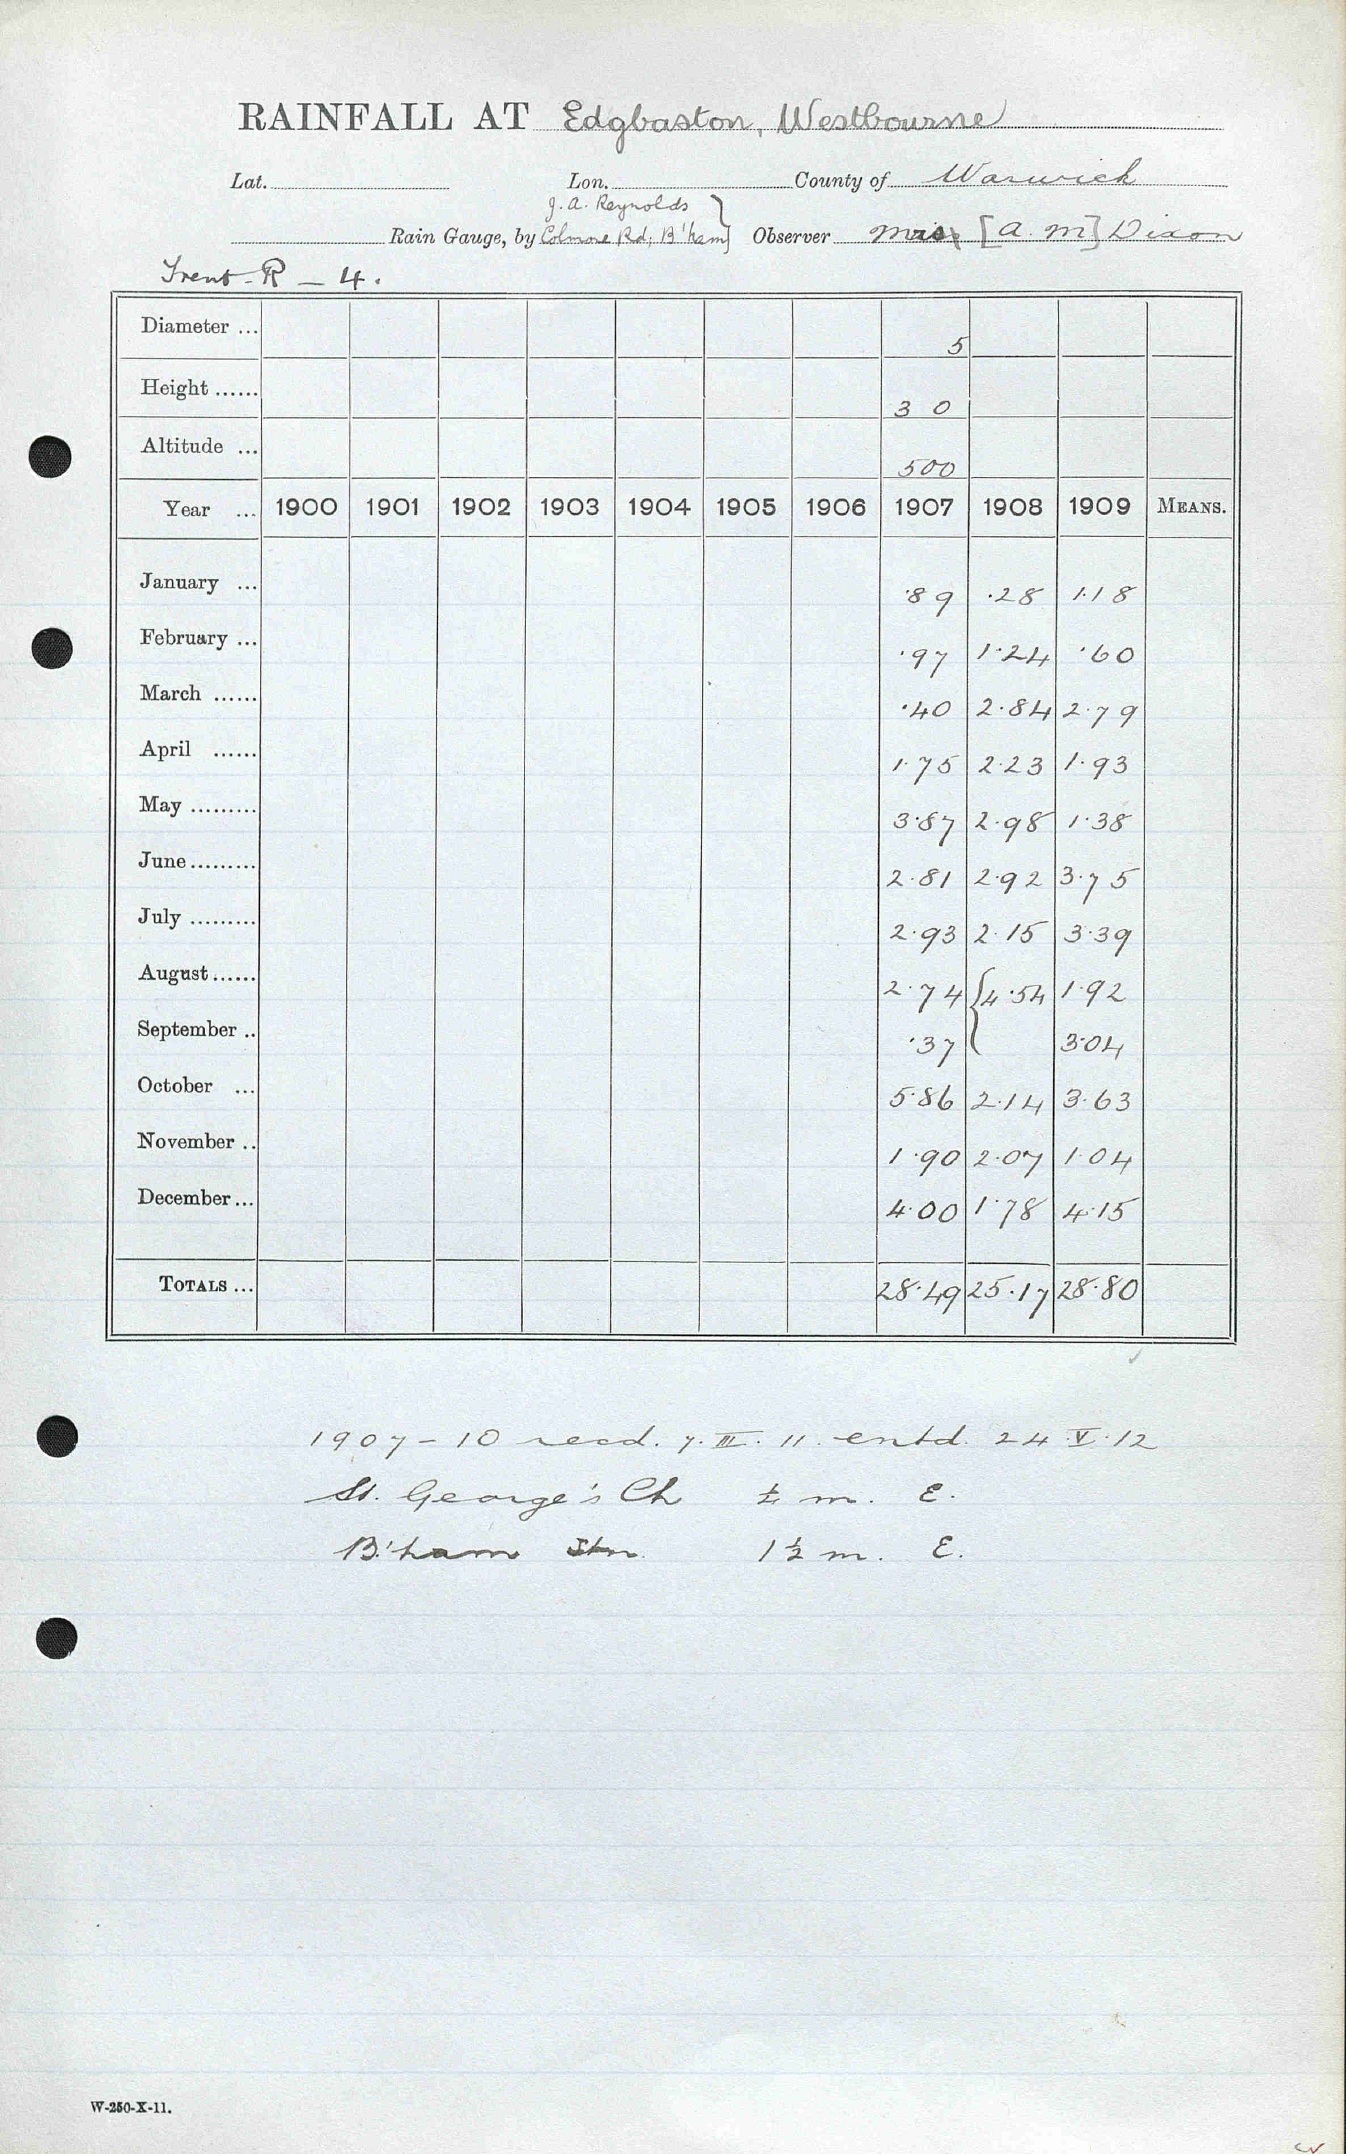 RAINFALL AT Edgbaston, Westbourne
Lat. Lon. County of Warwick
J. A. Reynolds
Rain Gauge, by Colmore Rd; B'ham} Observer [A. M] Dixon
Trent - R - 4.
Diameter ... 5
Height ...... 3 0
Altitude ... 500
Year ... 1900 1901 1902 1903 1904 1905 1906 1907 1908 1909 MEANS.
January ... .89 .28 1.18
February ... .97 1.24 .60
March ...... .40 2.84 2.79
April ...... 1.75 2.23 1.93
May ......... 3.87 2.98 1.38
June ......... 2.81 2.92 3.75
July ......... 2.93 2.15 3.39
August ...... 2.74 {4.54 1.92
September .. .37 3.04
October ... 5.86 2.14 3.63
November .. 1.90 2.07 1.04
December ... 4.00 1.78 4.15
TOTALS ... 28.49 25.17 28.80
1907 - 10 recd. 7.III.11. entd. 24.V.12
St. George's Ch m. E.
B'ham Stn. 1½ m. E.
W-250-X-11.